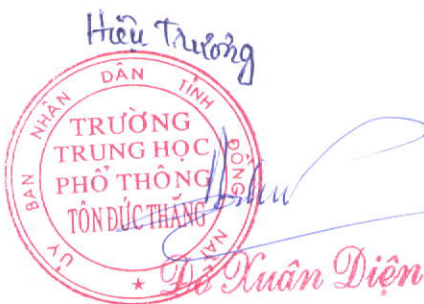 Hiệu Trưởng
ỦY BAN NHÂN DÂN TỈNH ĐỒNG NAI
TRƯỜNG
TRUNG HỌC
PHỔ THÔNG
TÔN ĐỨC THẮNG
★
Đỗ Xuân Diện